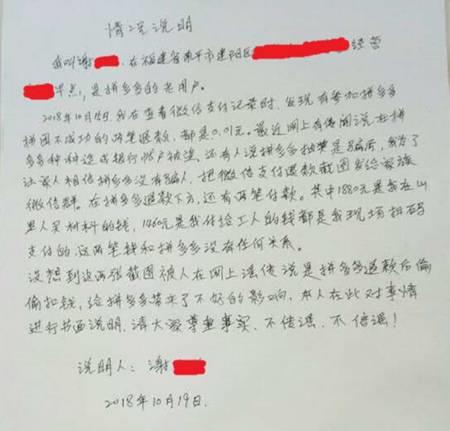 情况说明
我叫谢 ，在福建省南平市建阳区 经营
早点，是拼多多的老用户。
2018年10月15日，我在查看微信支付记录时，发现有参加拼多多
拼团不成功的两笔退款，都是0.01元。最近网上有传闻说在拼
多多种种造成银行账户被盗，还有人说拼多多按警是骗局，我为了
让家人相信拼多多没有骗人，把微信支付退款截图发给家族
微信群。在拼多多退款下方，还有两笔付款。其中1880元是我在山
里人买材料的钱，1460元是我付给工人的钱都是我现场扫码
支付的这两笔钱和拼多多没有任何关系。
没想到这两张截图被人在网上谣传说是拼多多退款后偷
偷扣钱，给拼多多带来了不好的影响，本人在此对事情
进行书面说明，请大家尊重事实、不传谣、不信谣！
说明人：谢
2018年10月19日.